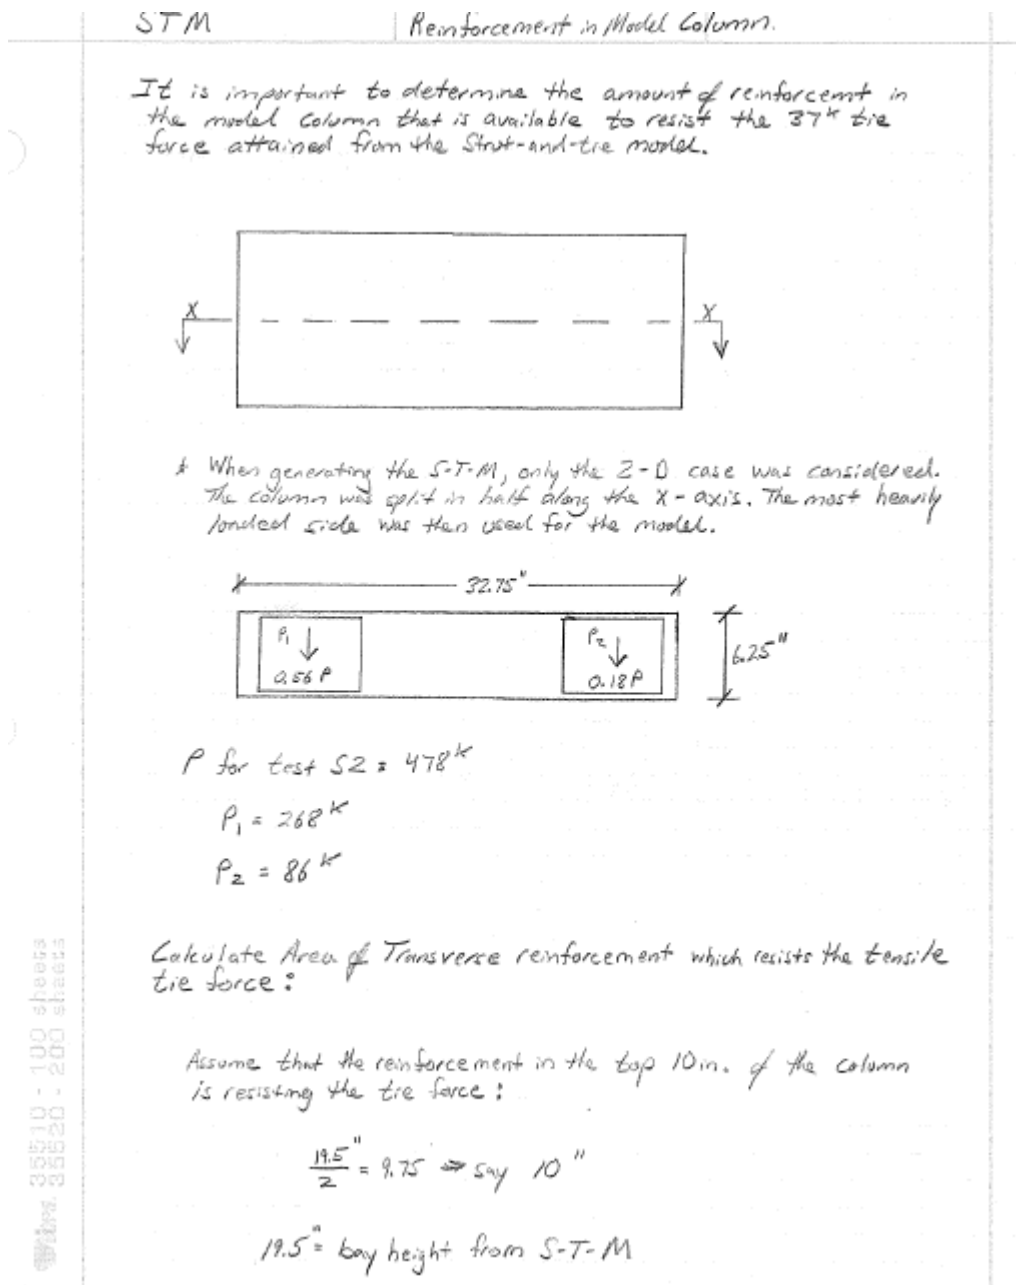 STM Reinforcement in Model Column.
It is important to determine the amount of reinforcemt in
the model column that is available to resist the 37ᵏ tie
force attained from the Strut-and-tie model.
X X
* When generating the S-T-M, only the 2-D case was considered.
The column was split in half along the X-axis. The most heavily
loaded side was then used for the model.
32.75"
P₁ P₂
0.56 P 0.18P
6.25"
P for test S2 = 478ᵏ
P₁ = 268ᵏ
P₂ = 86ᵏ
Calculate Area of Transverse reinforcement which resists the tensile
tie force:
Assume that the reinforcement in the top 10in. of the column
is resisting the tie force:
19.5"/2 = 9.75 ⇒ say 10"
19.5" = bay height from S-T-M
35510 - 100 sheets
35520 - 200 sheets